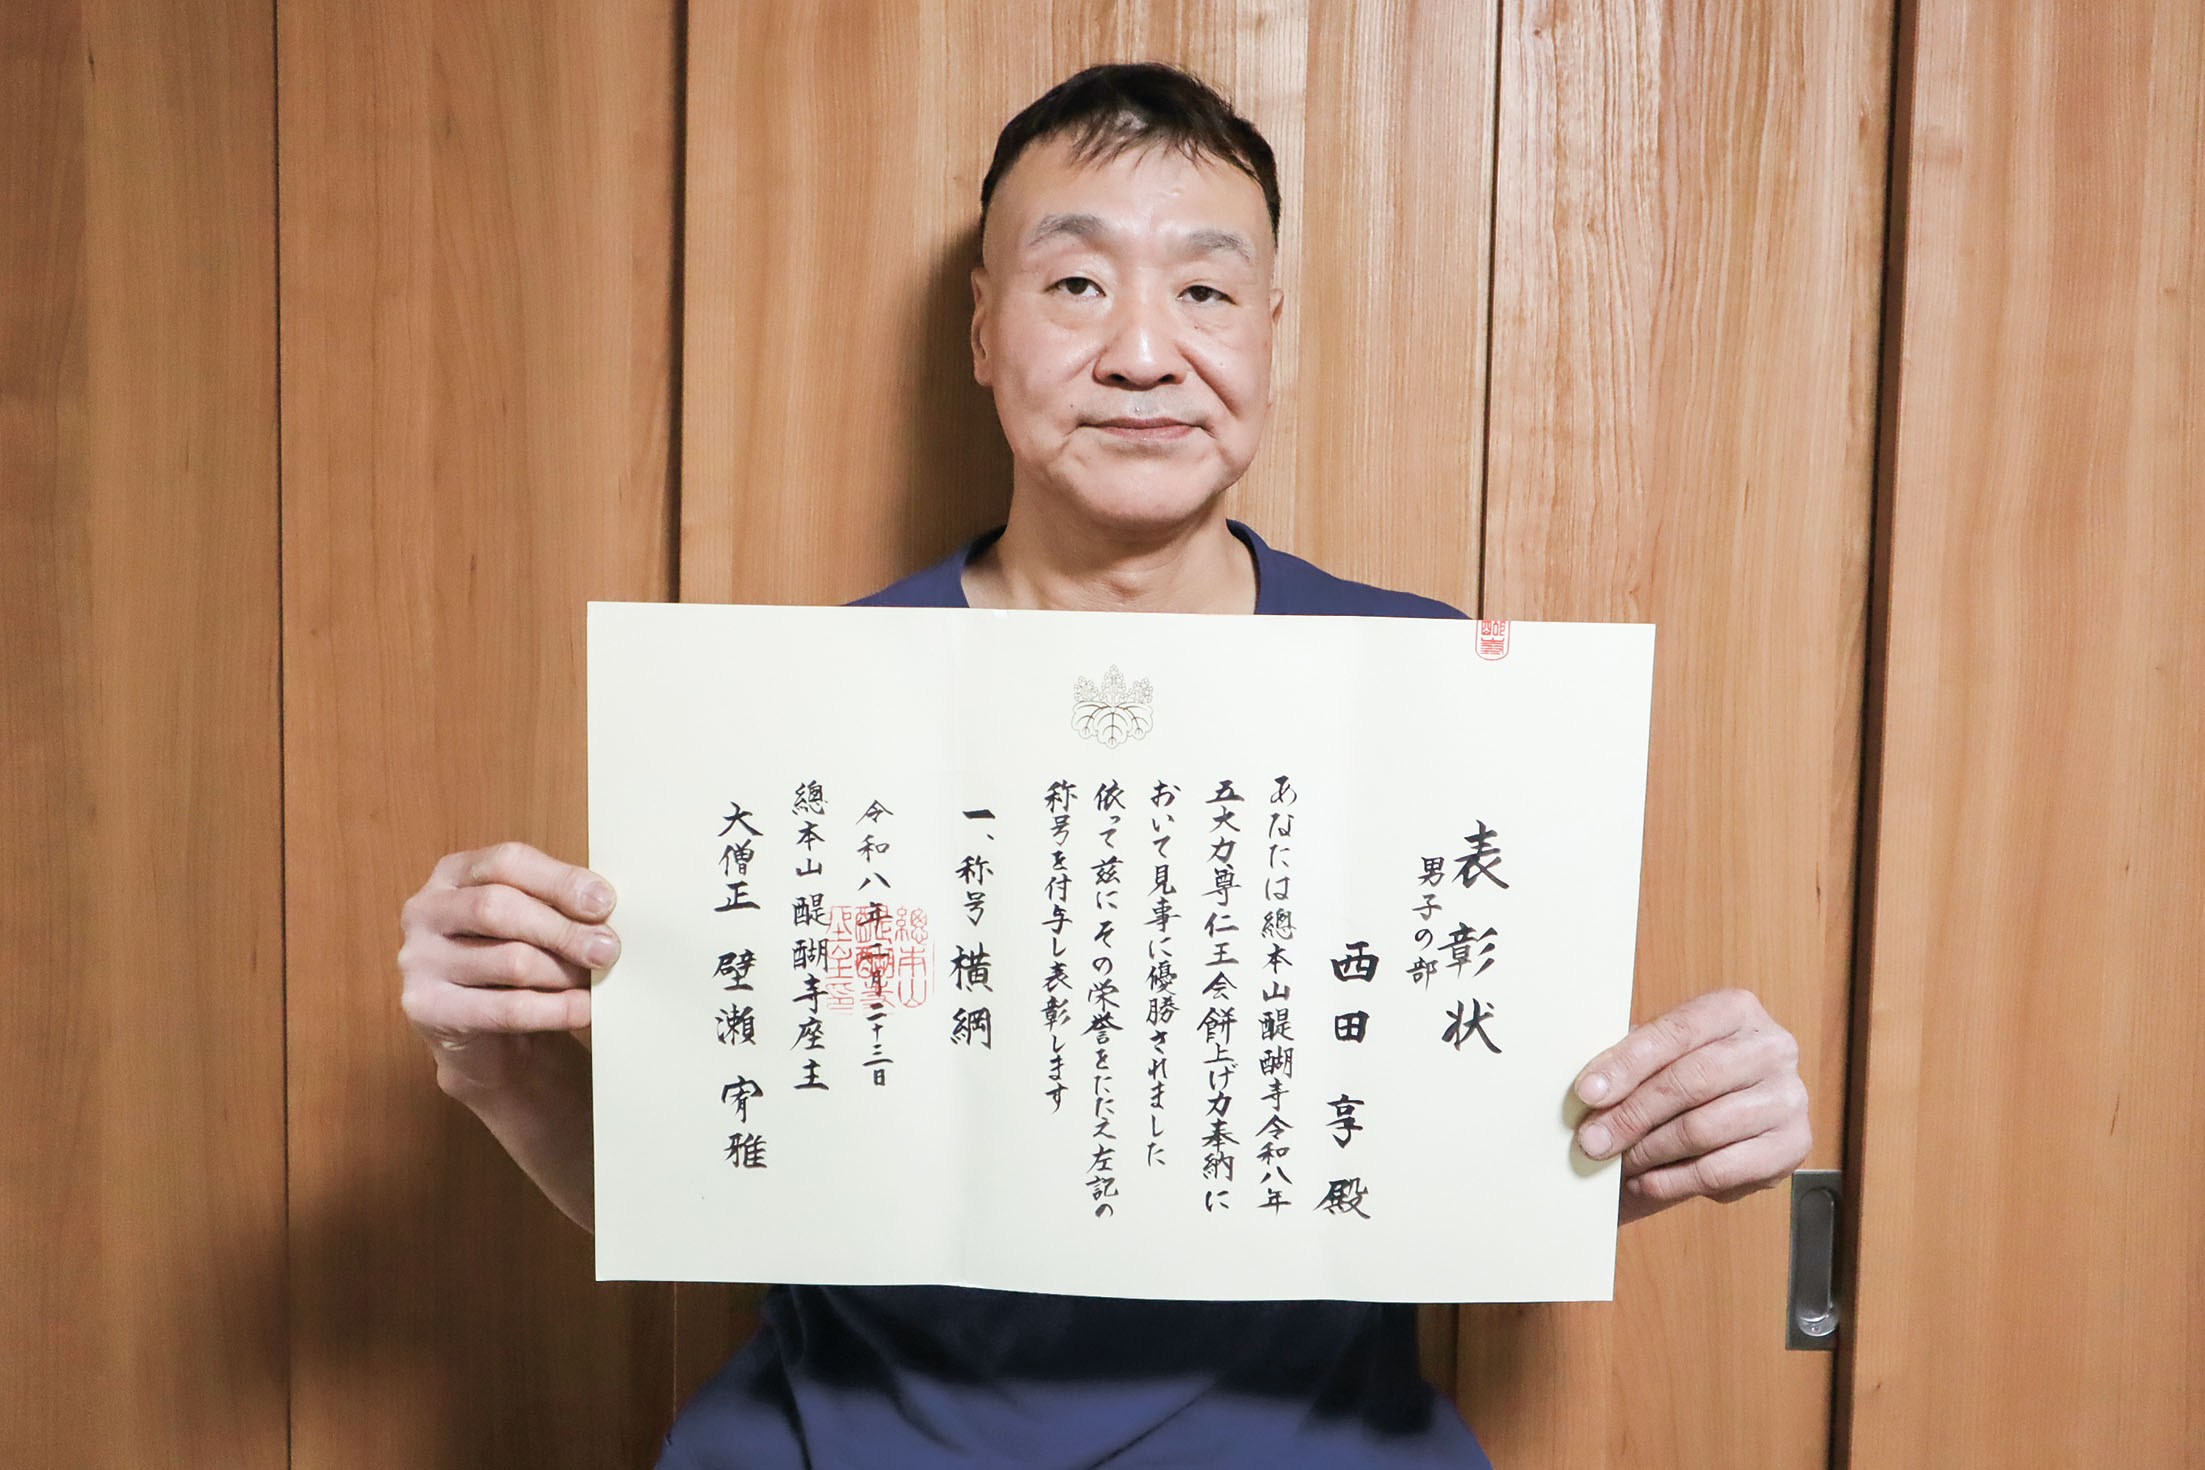 表彰状
男子の部
西田 享 殿
あなたは總本山醍醐寺令和八年
五大力尊仁王会餅上げ力奉納に
おいて見事に優勝されました
依って茲にその栄誉をたたえ左記の
称号を付与し表彰します
一、称号 横綱
令和八年二月二十三日
總本山 醍醐寺座主
大僧正 壁瀬 宥雅
總本山
醍醐寺
座主印